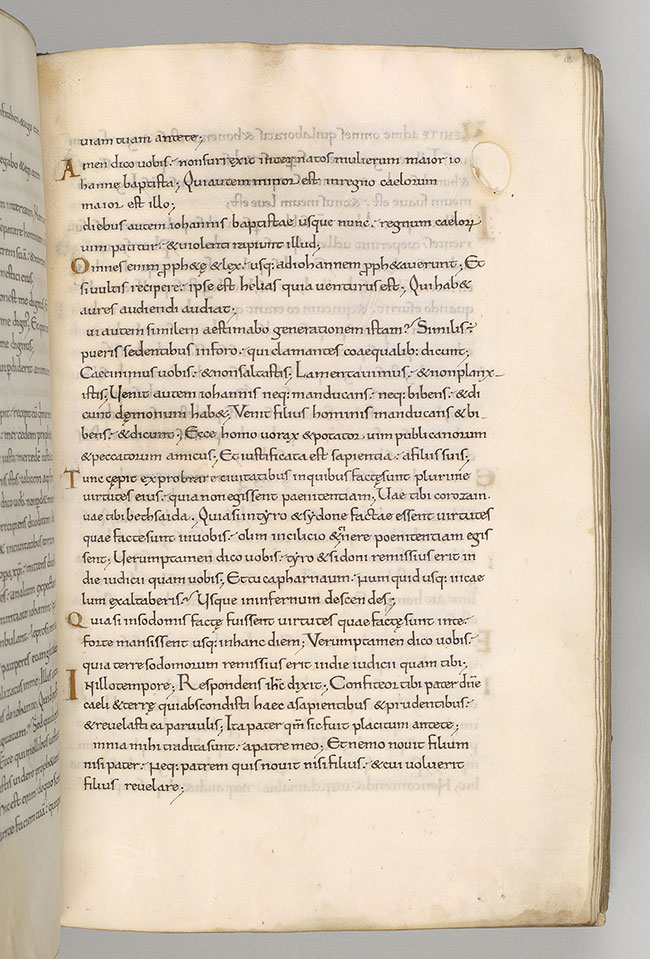 12
uiam tuam ante te;
Amen dico uobis· non surrexit inter natos mulierum maior io
hanne baptista; Qui autem minor est in regno caelorum
maior est illo;
diebus autem iohannis baptistae usque nunc· regnum caelor
um patitur· & uiolenti rapiunt illud;
Omnes enim pph&ę & lex· usq; ad iohannem pph&auerunt; Et
si uultis recipere· ipse est helias qui a uenturus est; Qui hab&
aures audiendi audiat;
ui autem similem aestimabo generationem istam? Similis·
pueris sedentibus in foro· qui clamantes coaequalib: dicunt;
Caecinimus uobis· & non saltastis; Lamentauimus· & non planx
istis; Uenit autem iohannis neq: manducans· neq: bibens· & di
cunt dęmonium hab&; Venit filius hominis manducans & bi
bens· & dicunt; Ecce homo uorax & potator uini publicanorum
& peccatorum amicus; Et iustificata est sapientia· a filiis suis;
Tunc cępit exprobrare ciuitatibus in quibus factę sunt plurimę
uirtutes eius· quia non egissent paenitentiam; Uae tibi corozain·
uae tibi bethsaida· Quia si in tyro & sydone factae essent uirtutes
quae factę sunt in uobis· olim in cilicio & cinere poenitentiam egis
sent; Uerumptamen dico uobis· tyro & sidoni remissius erit in
die iudicii quam uobis; Et tu capharnaum· numquid usq: in cae
lum exaltaberis? Usque in infernum descendes;
Quia si in sodomis factę fuissent uirtutes quae factę sunt in te·
forte mansissent usq: in hanc diem; Verumptamen dico uobis·
quia terre sodomorum remissius erit in die iudicii quam tibi;
In illo tempore; Respondens ihc dixit; Confiteor tibi pater dne
caeli & terrę qui abscondisti haec a sapientibus & prudentibus·
& reuelasti ea paruulis; Ita pater qm sic fuit placitum ante te;
mnia mihi tradita sunt· a patre meo; Et nemo nouit filium
nisi pater· neq: patrem quis nouit nisi filius· & cui uoluerit
filius reuelare;